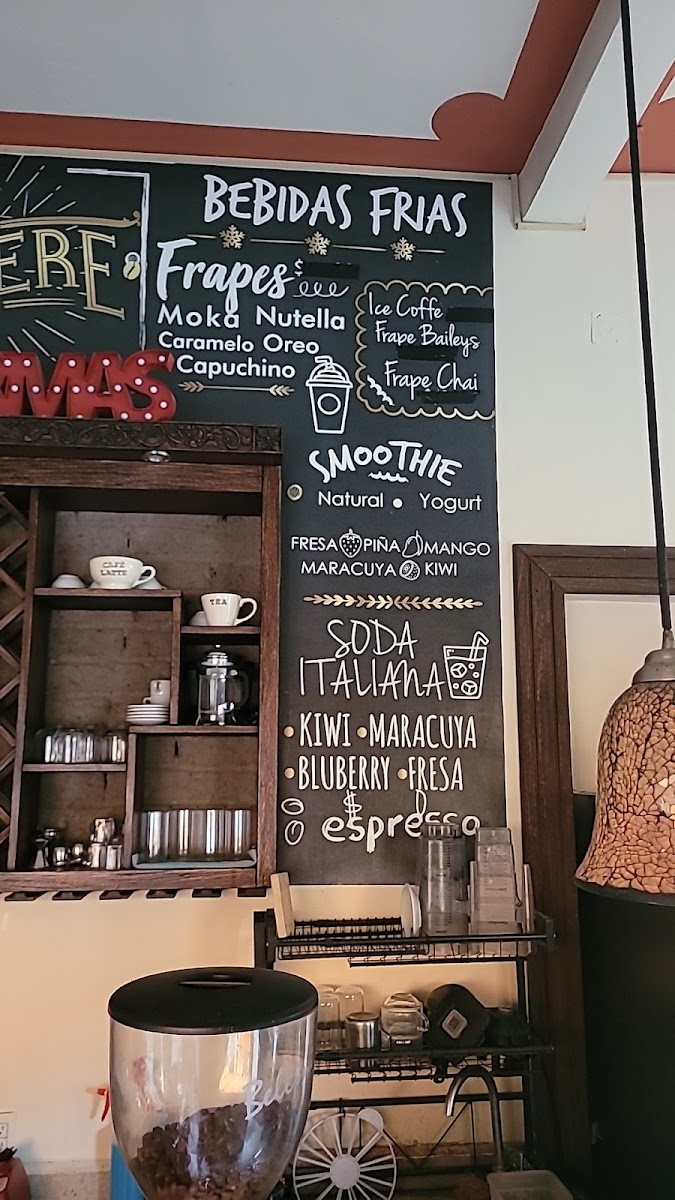 BEBIDAS FRIAS
ERE
Frapes $
Moka Nutella
Caramelo Oreo
Capuchino
Ice Coffe
Frape Baileys
Frape Chai
MAS
SMOOTHIE
Natural • Yogurt
FRESA PIÑA MANGO
MARACUYA KIWI
CAFÉ
LATTE
TEA
SODA
ITALIANA
• KIWI • MARACUYA
• BLUBERRY • FRESA
$
espresso